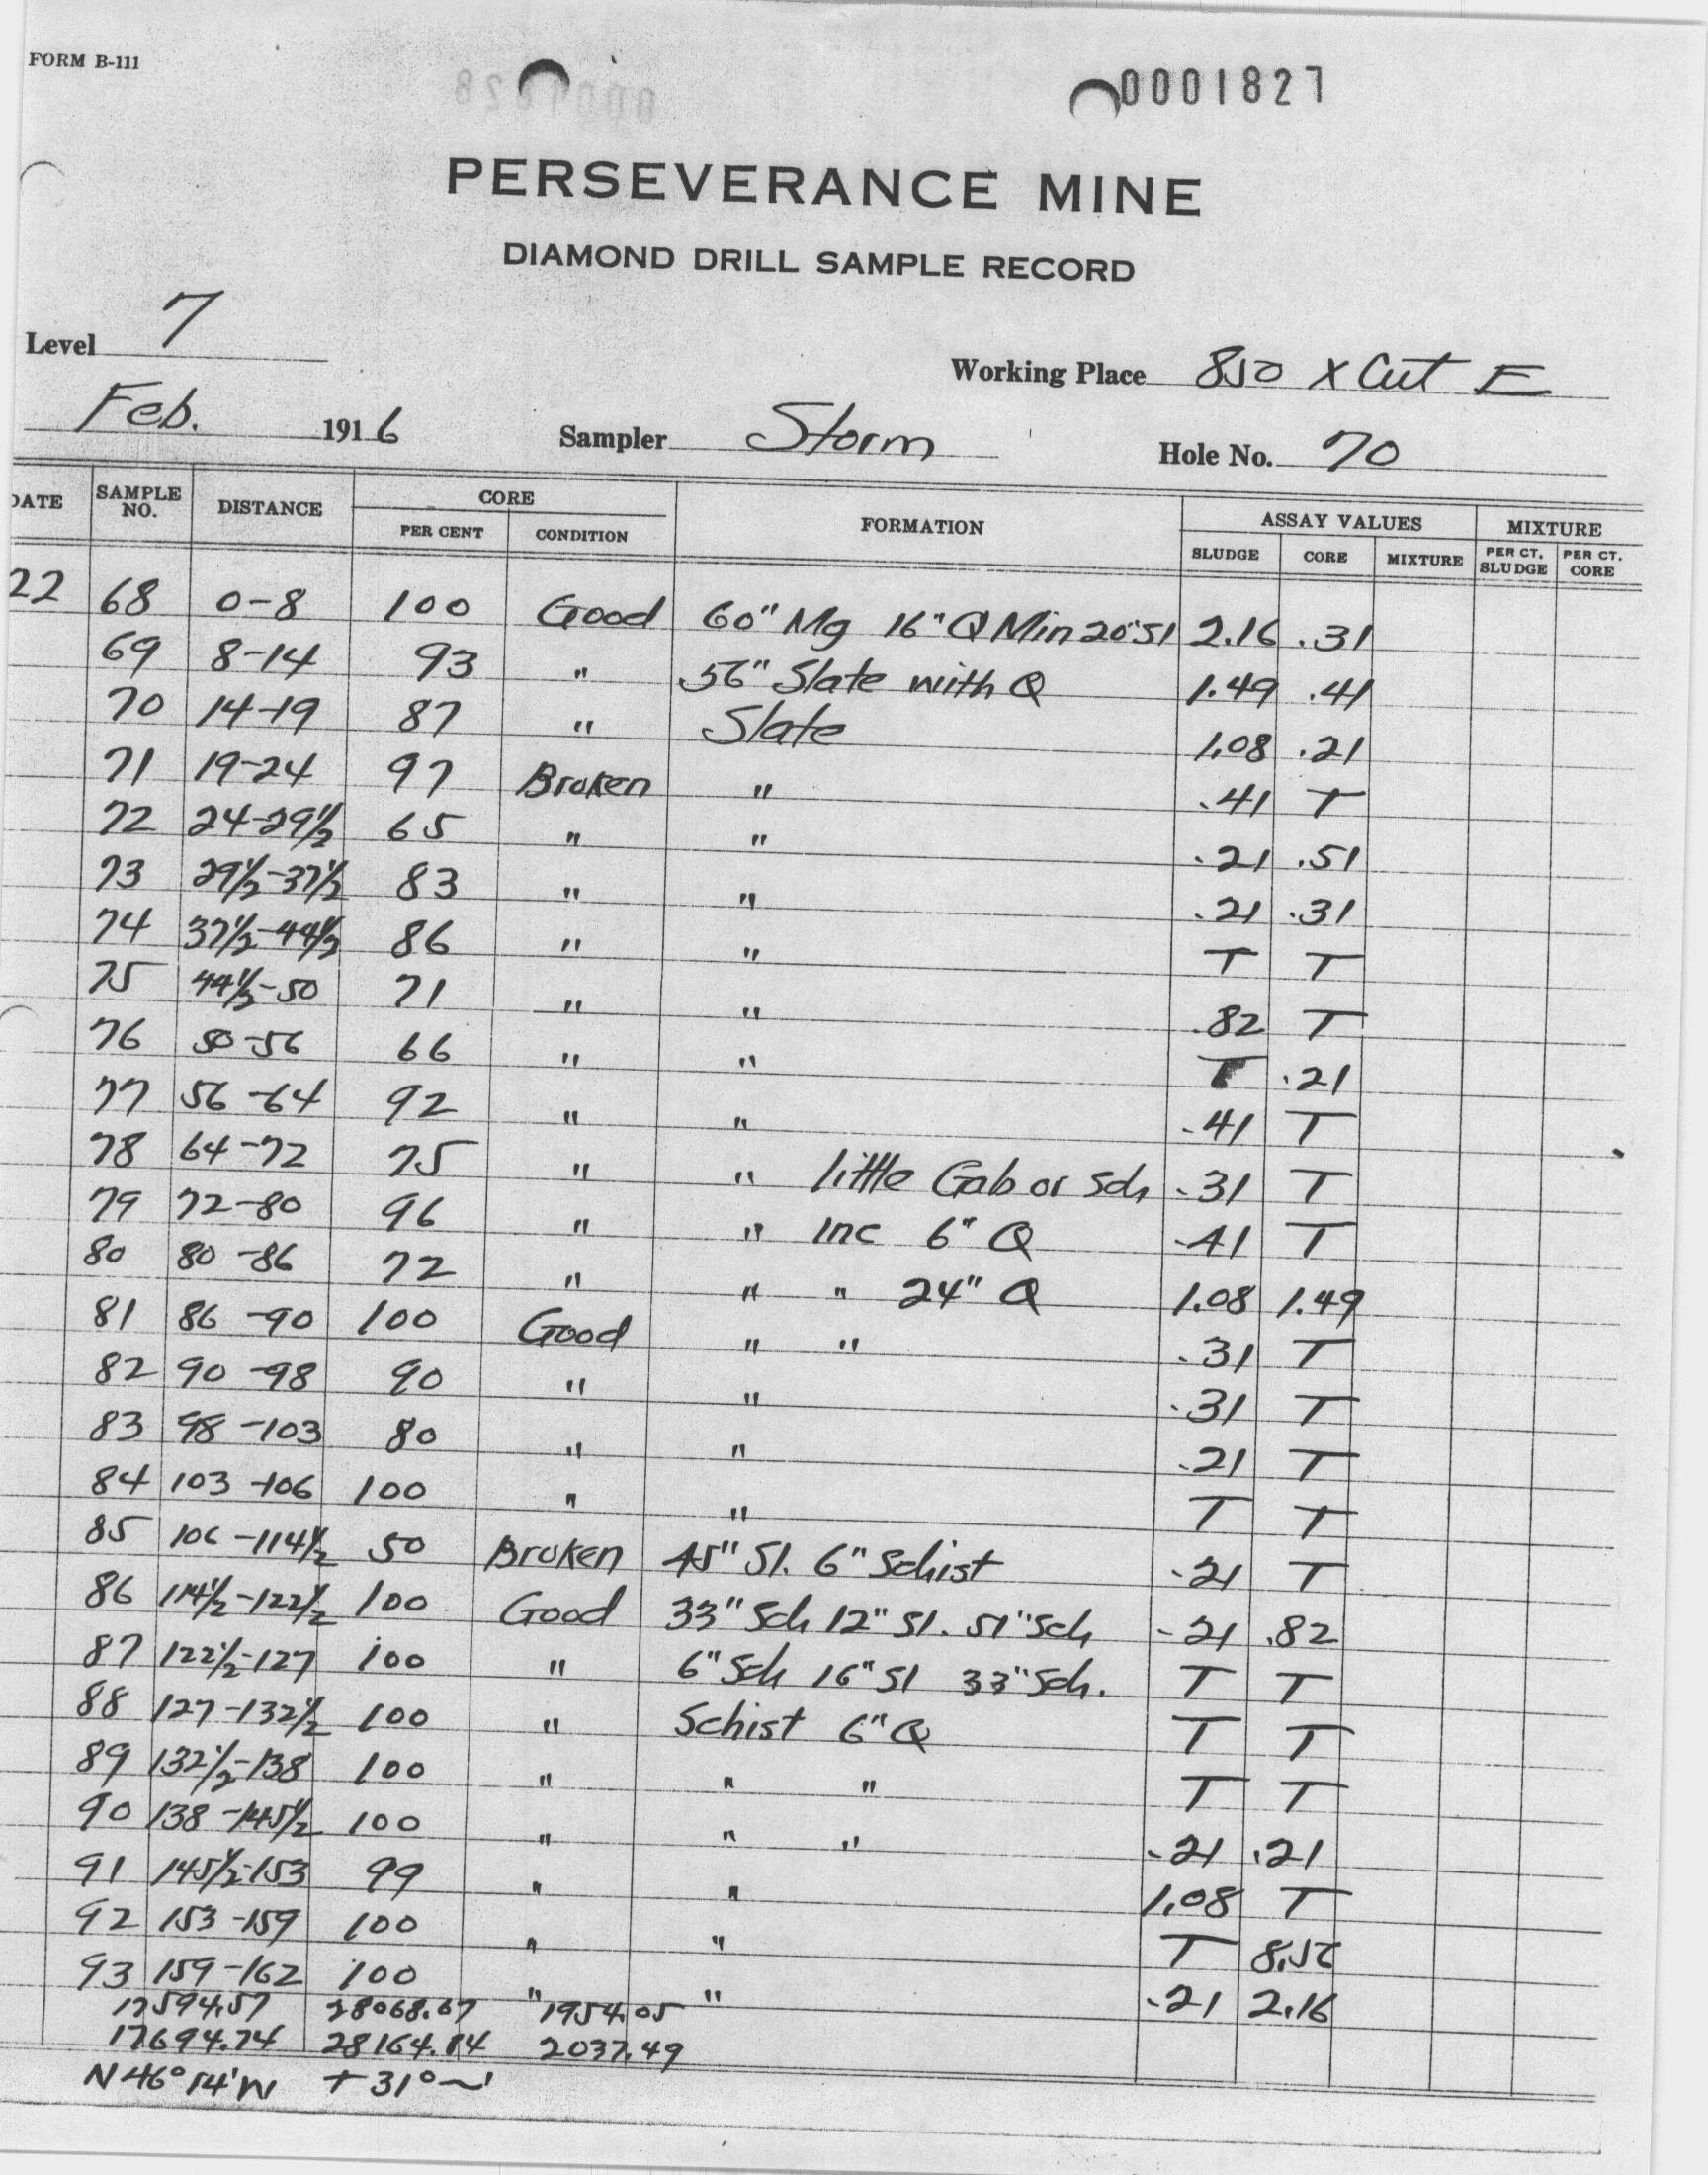 FORM B-111
0001828
0001827
PERSEVERANCE MINE
DIAMOND DRILL SAMPLE RECORD
Level 7
Working Place 850 X Cut E
Feb. 1916 Sampler Storm Hole No. 70
DATE SAMPLE NO. DISTANCE CORE FORMATION ASSAY VALUES MIXTURE
PER CENT CONDITION SLUDGE CORE MIXTURE PER CT. SLUDGE PER CT. CORE
22 68 0-8 100 Good 60" Mg 16" Q Min 20" Sl 2.16 .31
69 8-14 93 " 56" Slate with Q 1.49 .41
70 14-19 87 " Slate 1.08 .21
71 19-24 97 Broken " .41 T
72 24-29½ 65 " " .21 .51
73 29½-37½ 83 " " .21 .31
74 37½-44½ 86 " " T T
75 44½-50 71 " " .82 T
76 50-56 66 " " T .21
77 56-64 92 " " .41 T
78 64-72 75 " " little Gab or Sch .31 T
79 72-80 96 " " inc 6" Q .41 T
80 80-86 72 " " " 24" Q 1.08 1.49
81 86-90 100 Good " " .31 T
82 90-98 90 " " .31 T
83 98-103 80 " " .21 T
84 103-106 100 " " T T
85 106-114½ 50 Broken 45" Sl. 6" Schist .21 T
86 114½-122½ 100 Good 33" Sch 12" Sl. 51" Sch .21 .82
87 122½-127 100 " 6" Sch 16" Sl 33" Sch. T T
88 127-132½ 100 " Schist 6" Q T T
89 132½-138 100 " " " T T
90 138-145½ 100 " " " .21 .21
91 145½-153 99 " " 1.08 T
92 153-159 100 " " T 8.56
93 159-162 100 " " .21 2.16
17594.57 28068.67 1954.05
17694.74 28164.84 2037.49
N 46° 14' W + 31°